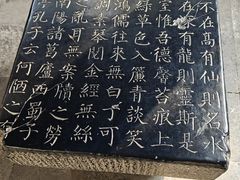 不在高有仙則名水
在深有龍則靈斯是
室惟吾德馨苔痕上
綠草色入簾青談笑
鴻儒往來無白丁可
調素琴閱金經無絲
之亂耳無案牘之勞
南陽諸葛廬西蜀子
孔子云何陋之有